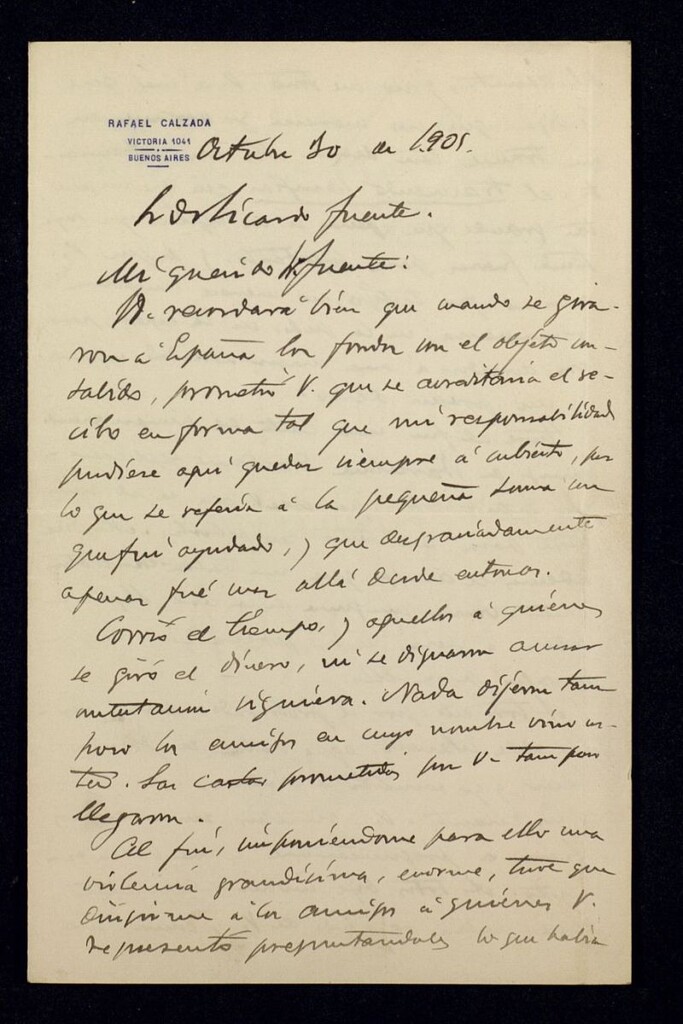 RAFAEL CALZADA
VICTORIA 1041
BUENOS AIRES
Octubre 30 de 1905.
Ricardo Fuente.
Mi querido Fuente:
V. recordará bien que cuando se gira-
ron á España los fondos con el objeto con-
sabido, prometió V. que se acreditaria el re-
cibo en forma tal que mi responsabilidad
pudiese aquí quedar siempre á cubierto, por
lo que se referia á la pequeña suma con
que fuí ayudado, y que desgraciadamente
apenas fué más allá desde entonces.
Corrió el tiempo, y aquellos á quienes
se giró el dinero, ni se dignaron acusar
contestacion siquiera. Nada dijeron tam
poco los amigos en cuyo nombre vino us-
ted. Las cartas prometidas por V. tampoco
llegaron.
Al fin, imponiéndome para ello una
violencia grandísima, enorme, tuve que
dirigirme á los amigos á quienes V.
representó preguntándoles lo que habia